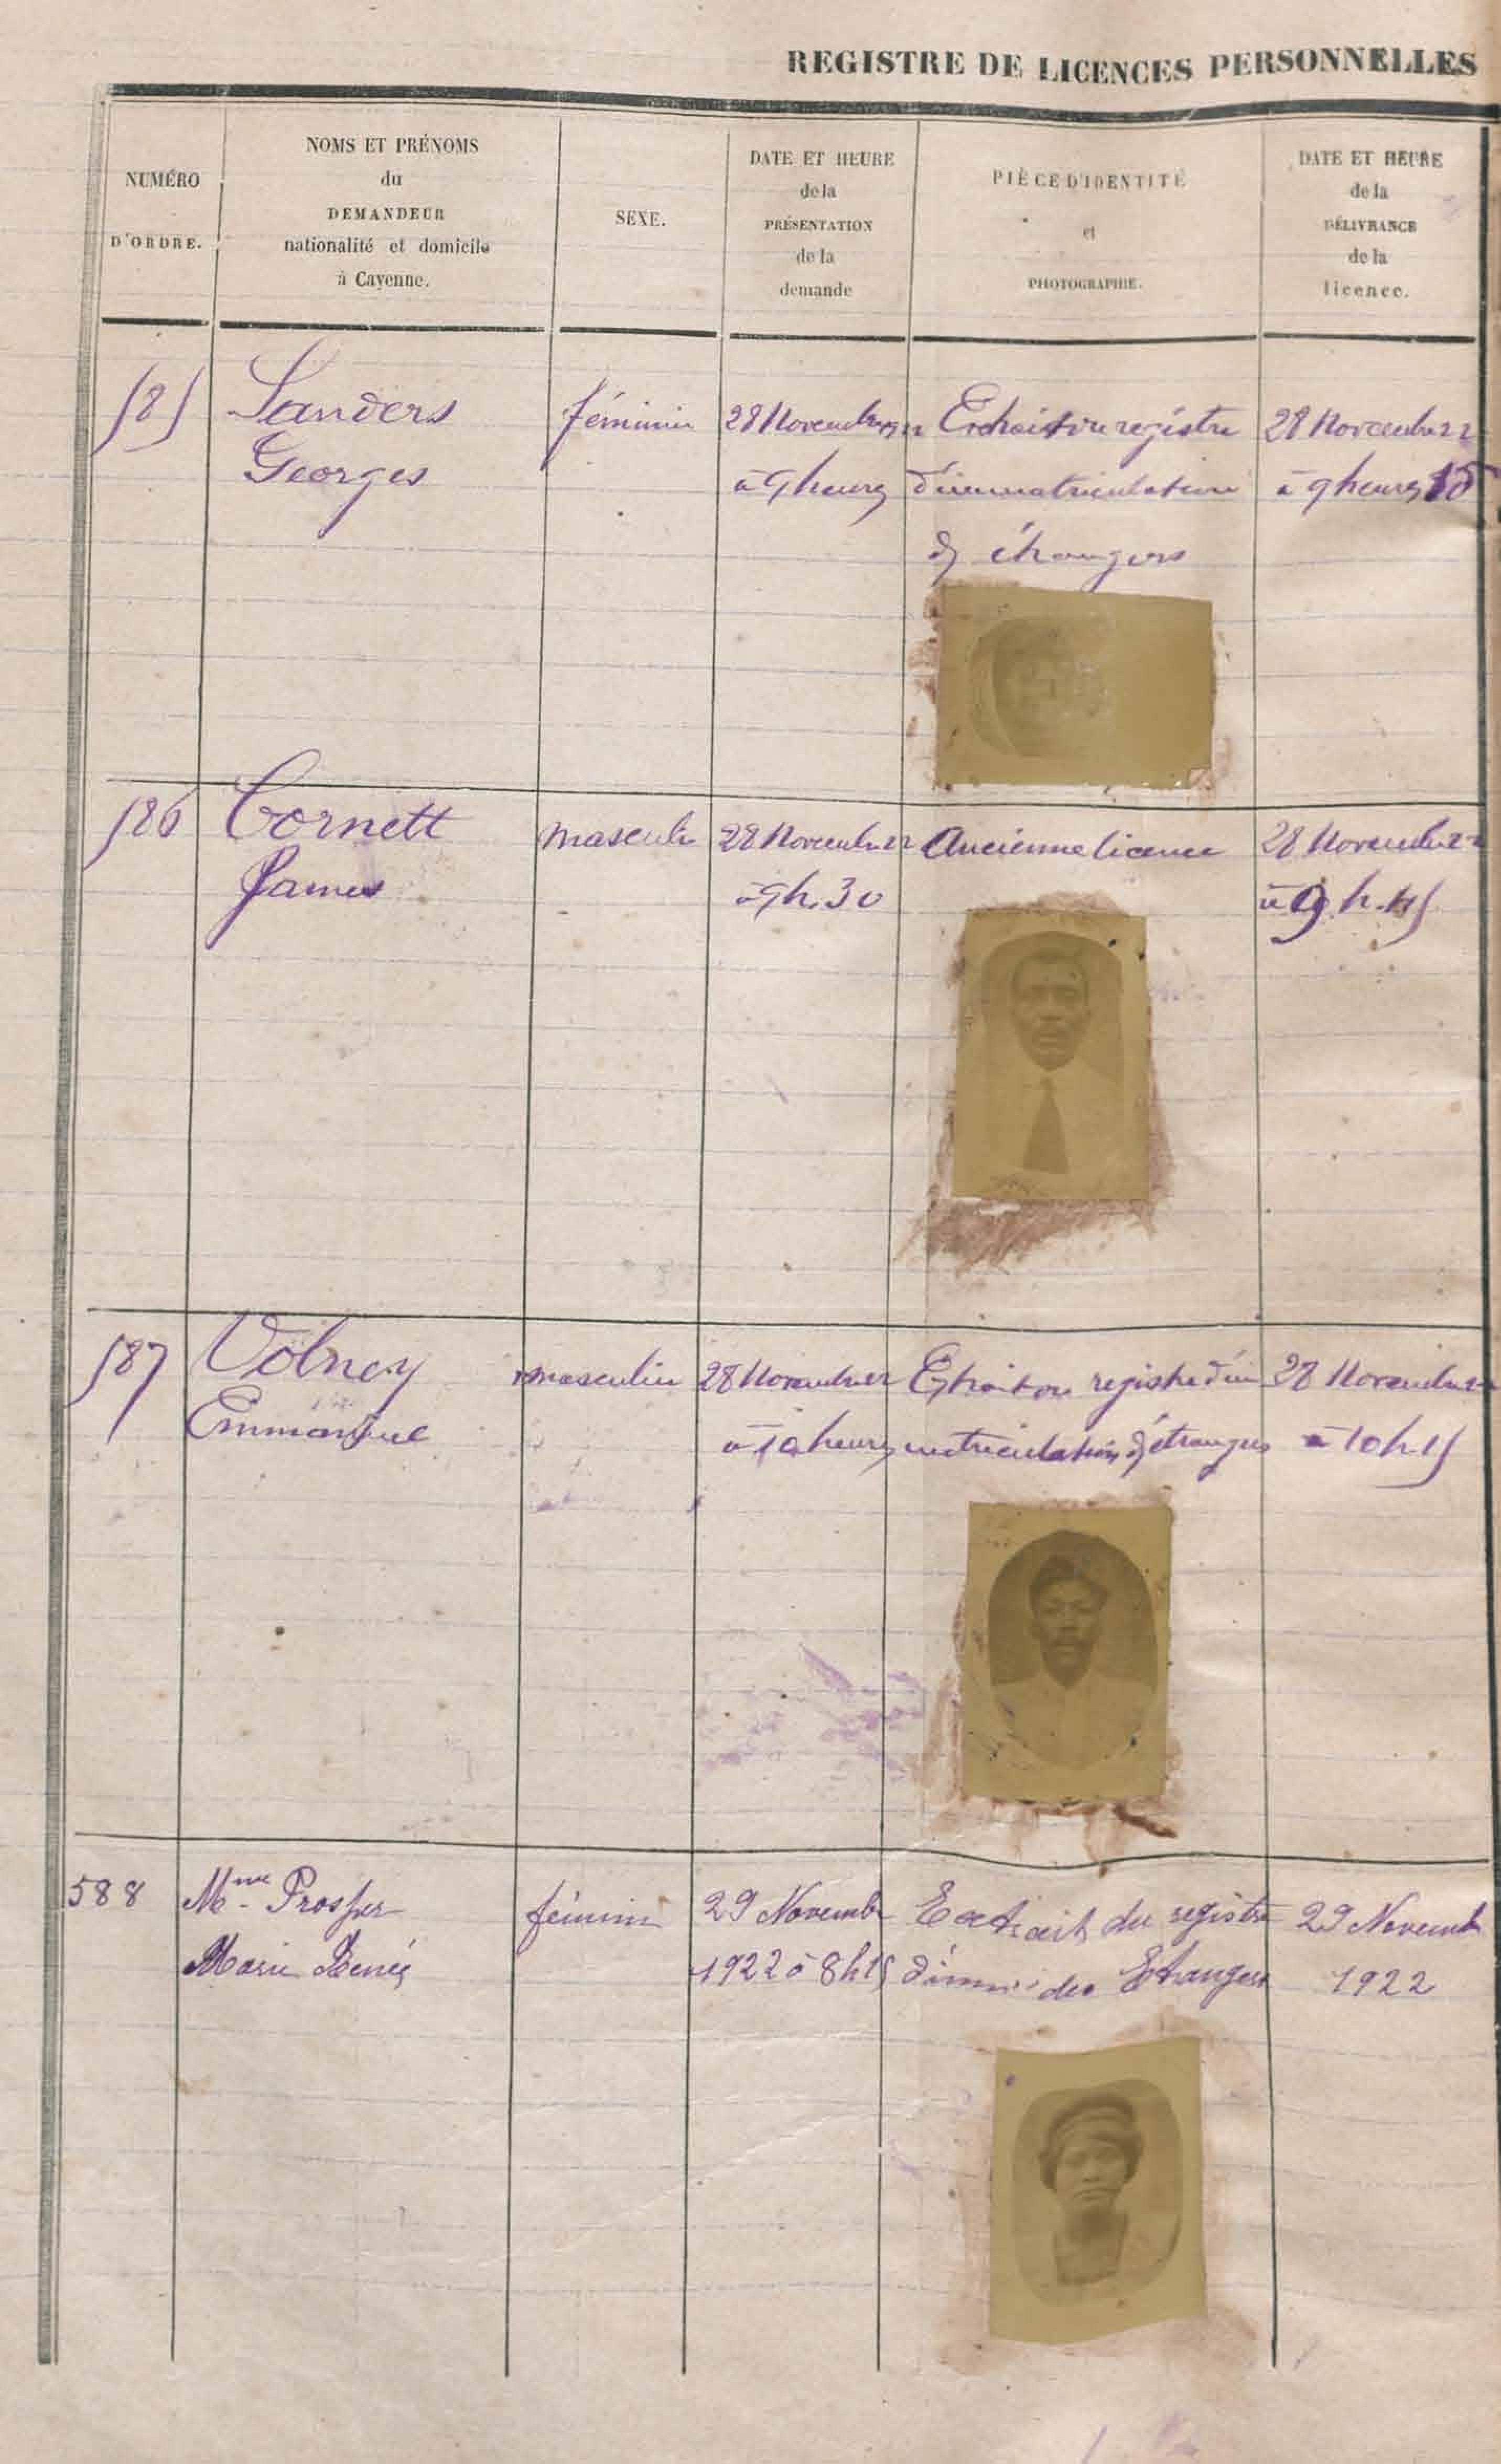 REGISTRE DE LICENCES PERSONNELLES
NUMÉRO
D'ORDRE.
NOMS ET PRÉNOMS
du
DEMANDEUR
nationalité et domicile
à Cayenne.
SEXE.
DATE ET HEURE
de la
PRÉSENTATION
de la
demande
PIÈCE D'IDENTITÉ
et
PHOTOGRAPHIE.
DATE ET HEURE
de la
DÉLIVRANCE
de la
licence.
585
Sanders
Georges
féminin
28 Novembre 1922
à 9 heures
Extrait du registre
d'immatriculation
des étrangers
28 Novembre 22
à 9 heures 15
586
Cornett
James
masculin
28 Novembre 22
à 9h. 30
Ancienne licence
28 Novembre 22
à 9 h. 45
587
Volney
Emmanuel
masculin
28 Novembre 22
à 10 heures
Extrait du registre d'im
matriculation des étrangers
28 Novembre 22
à 10 h. 15
588
Mme Prosper
Marie Renée
féminin
29 Novembre
1922 à 8h15
Extrait du registre
d'imm. des Etrangers
29 Novemb
1922